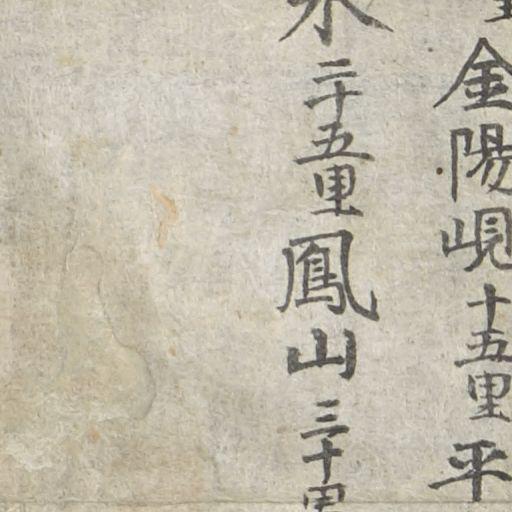 金陽峴十五里平
水二十五里鳳山三十里